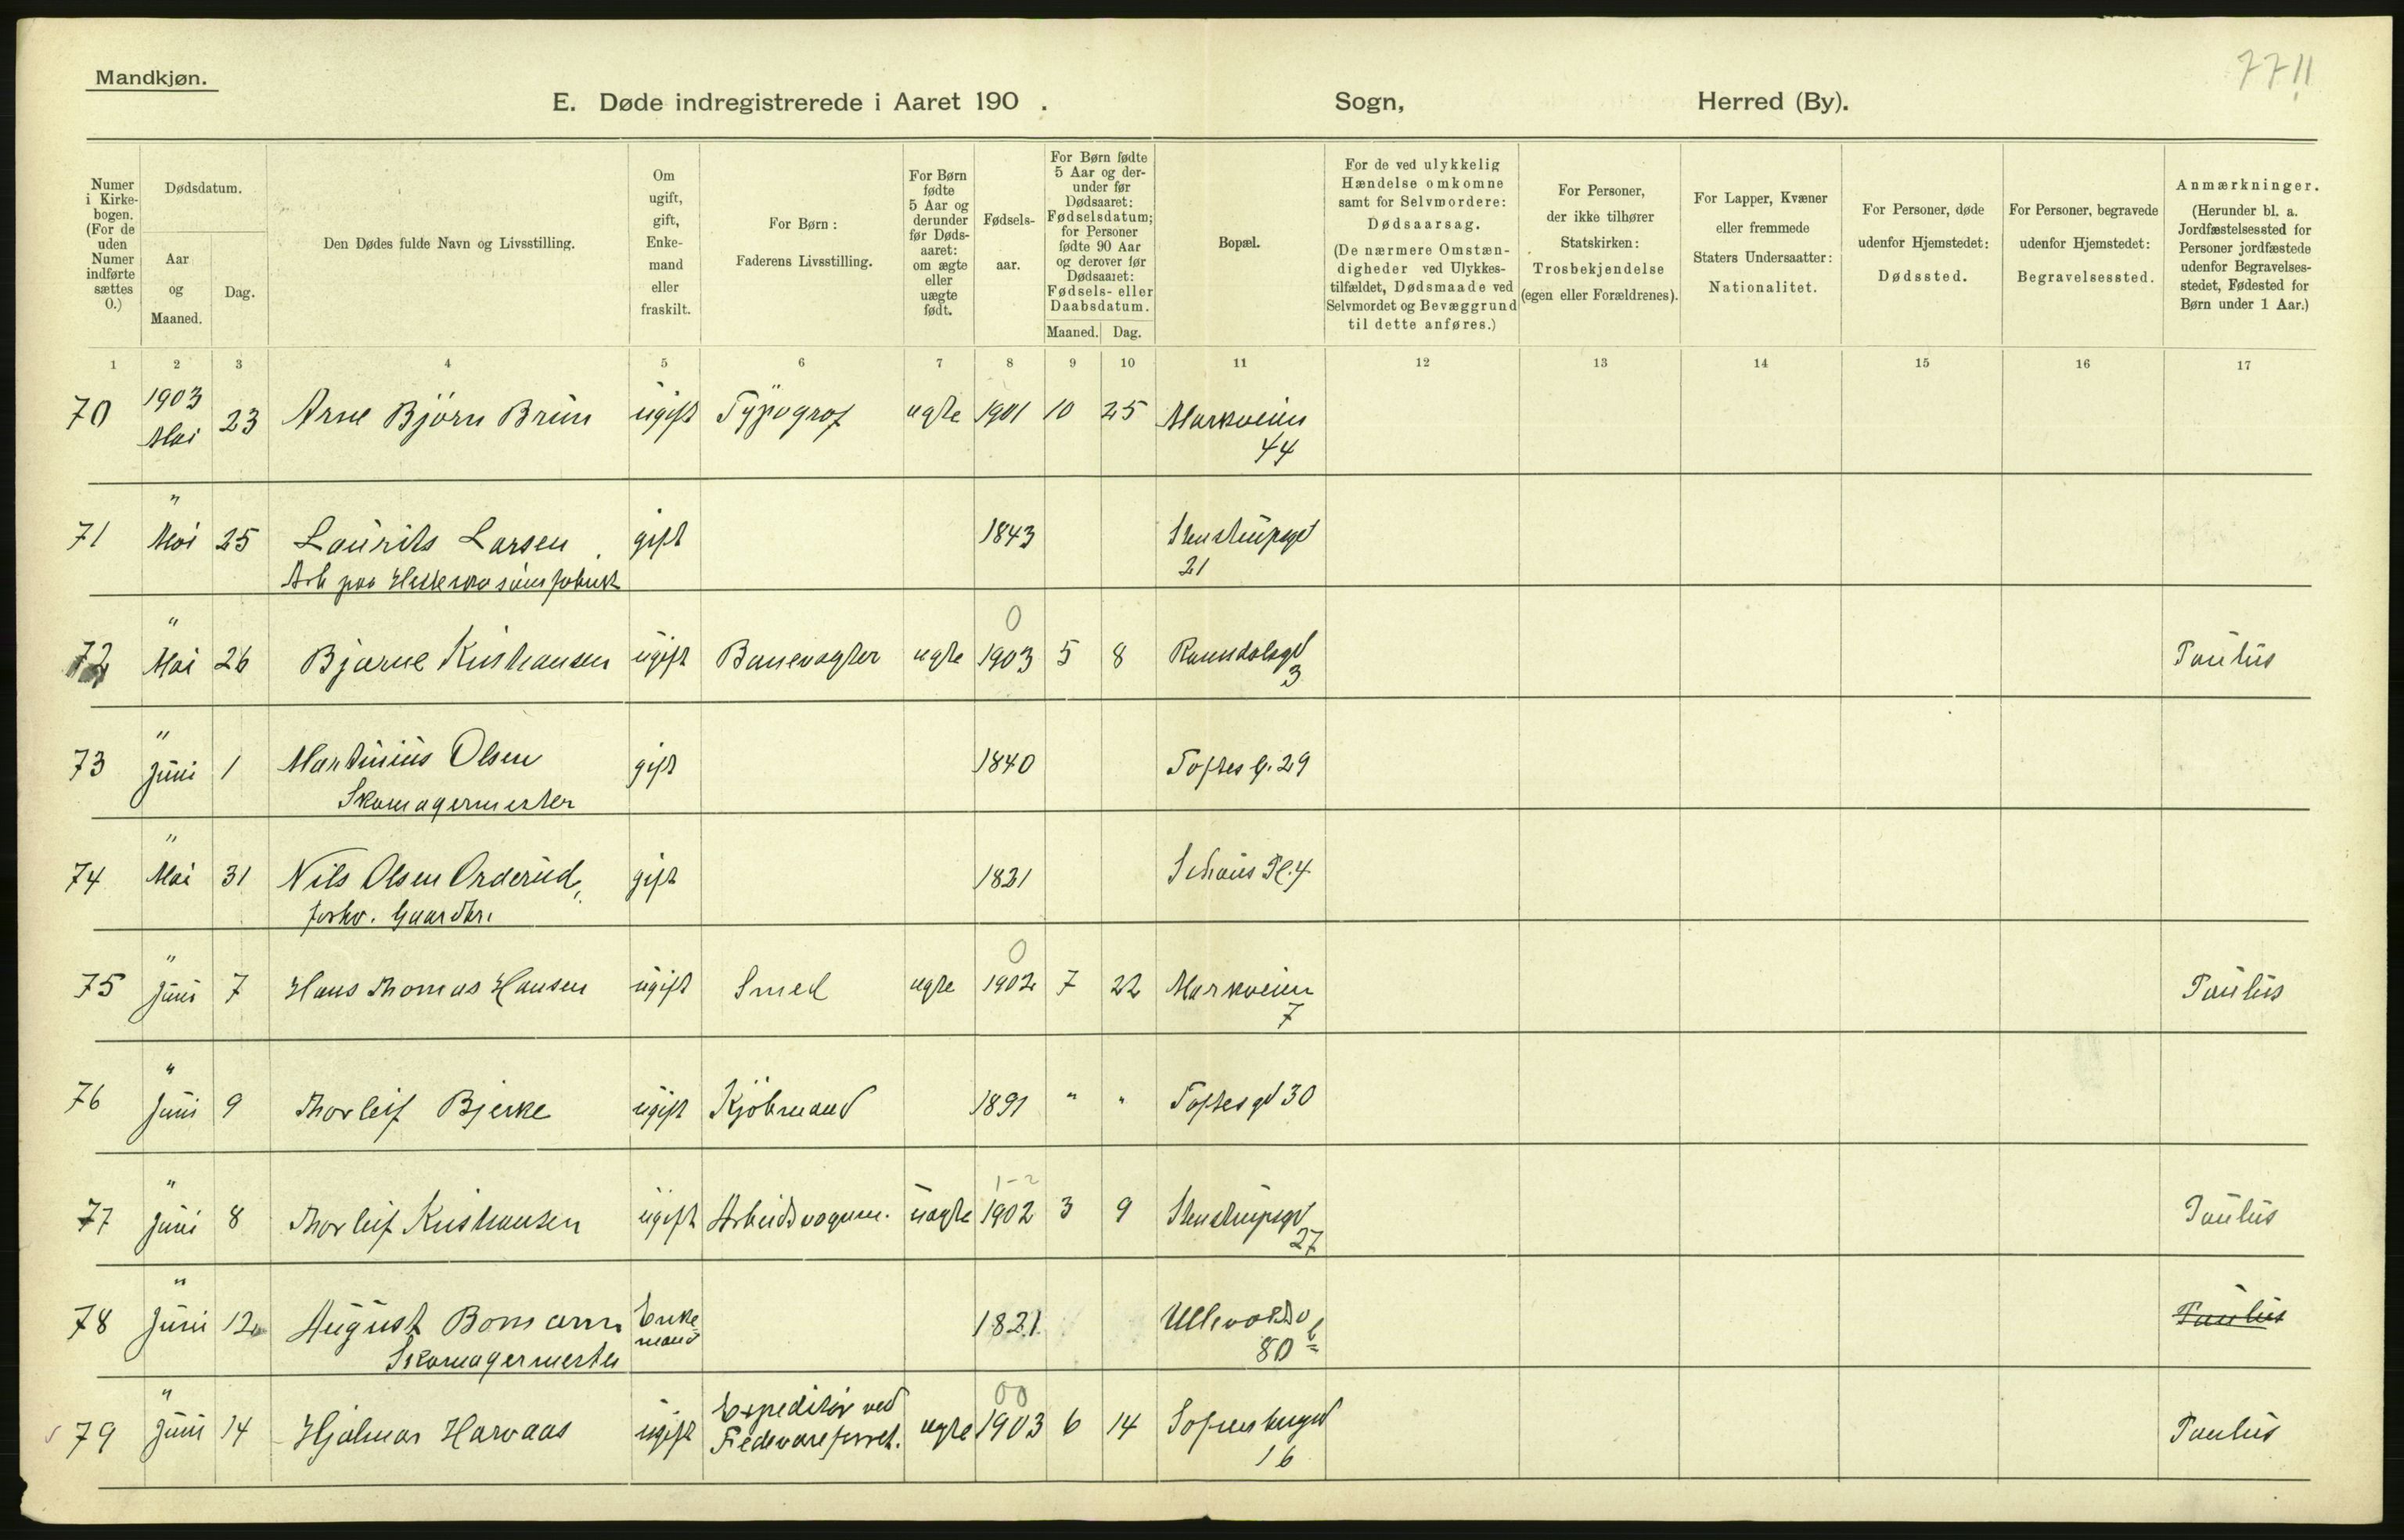 7711
Mandkjøn.
E. Døde indregistrerede i Aaret 190 . Sogn, Herred (By).
Numer i Kirkebogen. (For de uden Numer indførte sættes 0.)
Dødsdatum.
Aar og Maaned.
Dag.
Den Dødes fulde Navn og Livsstilling.
Om ugift, gift, Enkemand eller fraskilt.
For Børn: Faderens Livsstilling.
For Børn fødte 5 Aar og derunder før Dødsaaret: om ægte eller uægte født.
Fødselsaar.
For Børn fødte 5 Aar og derunder før Dødsaaret: Fødselsdatum; for Personer fødte 90 Aar og derover før Dødsaaret: Fødsels- eller Daabsdatum.
Maaned. Dag.
Bopæl.
For de ved ulykkelig Hændelse omkomne samt for Selvmordere: Dødsaarsag. (De nærmere Omstændigheder ved Ulykkestilfældet, Dødsmaade ved Selvmordet og Bevæggrund til dette anføres.)
For Personer, der ikke tilhører Statskirken: Trosbekjendelse (egen eller Forældrenes).
For Lapper, Kvæner eller fremmede Staters Undersaatter: Nationalitet.
For Personer, døde udenfor Hjemstedet: Dødssted.
For Personer, begravede udenfor Hjemstedet: Begravelsessted.
Anmærkninger. (Herunder bl. a. Jordfæstelsessted for Personer jordfæstede udenfor Begravelsesstedet, Fødested for Børn under 1 Aar.)
1 2 3 4 5 6 7 8 9 10 11 12 13 14 15 16 17
70 1903 Mai 23 Arne Björn Brun ugift Typograf ægte 1901 10 25 Markveien 44
71 " Mai 25 Laurits Larsen gift 1843 Stenstrupsgd 21
Arb paa Hesteskosømfabrik
0
72 " Mai 26 Bjarne Kristiansen ugift Banevogter ægte 1903 5 8 Raumsdalsgd 3 Paulus
73 " Juni 1 Martinius Olsen gift 1840 Toftes G. 29
Skomagermester
74 " Mai 31 Nils Olsen Orderud, gift 1821 Schous Pl. 4
forhv. Gaardbr.
0
75 " Juni 7 Hans Thomas Hansen ugift Smed ægte 1902 7 22 Markveien 7 Paulus
76 " Juni 9 Thorleif Bjerke ugift Kjöbmand 1891 " " Toftes gd 30
1-2
77 " Juni 8 Thorleif Kristiansen ugift Arbeidsvognm. uægte 1902 3 9 Stenstrupsgd 27 Paulus
78 " Juni 12 August Bomann Enkemand 1821 Ullevoldsv 80 b Paulus
Skomagermester
00
79 " Juni 14 Hjalmar Harvaas ugift Expeditör ved Fedevareforret. ægte 1903 6 14 Sofienberggd 16 Paulus